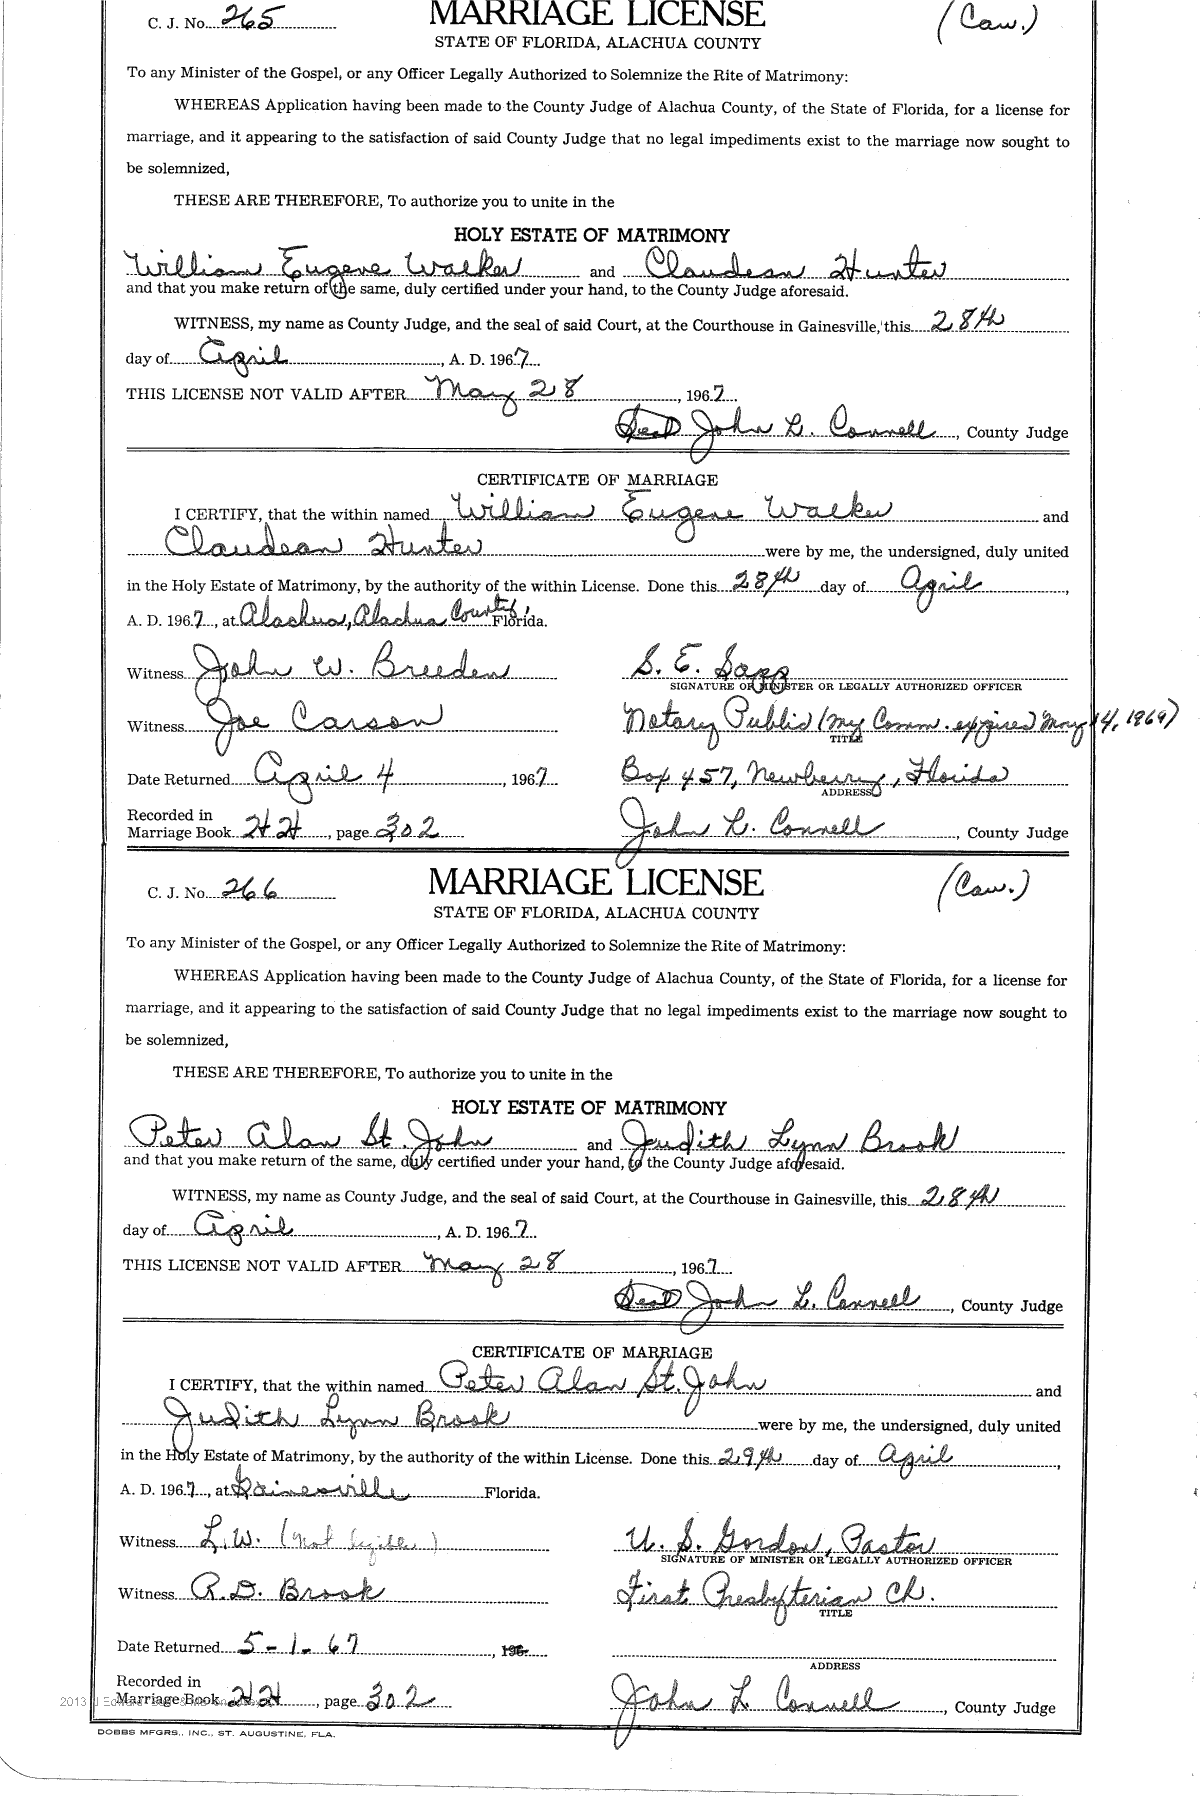 C. J. No. 265 MARRIAGE LICENSE (Caw.)
STATE OF FLORIDA, ALACHUA COUNTY
To any Minister of the Gospel, or any Officer Legally Authorized to Solemnize the Rite of Matrimony:
WHEREAS Application having been made to the County Judge of Alachua County, of the State of Florida, for a license for
marriage, and it appearing to the satisfaction of said County Judge that no legal impediments exist to the marriage now sought to
be solemnized,
THESE ARE THEREFORE, To authorize you to unite in the
HOLY ESTATE OF MATRIMONY
William Eugene Walker and Claudean Hunter
and that you make return of the same, duly certified under your hand, to the County Judge aforesaid.
WITNESS, my name as County Judge, and the seal of said Court, at the Courthouse in Gainesville, this 28th
day of April, A. D. 1967
THIS LICENSE NOT VALID AFTER May 28, 1967
Seal John L. Connell, County Judge
CERTIFICATE OF MARRIAGE
I CERTIFY, that the within named William Eugene Walker and
Claudean Hunter were by me, the undersigned, duly united
in the Holy Estate of Matrimony, by the authority of the within License. Done this 28th day of April,
A. D. 1967, at Alachua, Alachua County, Florida.
Witness John W. Breeden S. E. Sapp
SIGNATURE OF MINISTER OR LEGALLY AUTHORIZED OFFICER
Witness Joe Carson Notary Public (my Comm. expires May 14, 1969)
TITLE
Date Returned April 4, 1967 Box 457, Newberry, Florida
ADDRESS
Recorded in
Marriage Book HH, page 302 John L. Connell, County Judge
C. J. No. 266 MARRIAGE LICENSE (Caw.)
STATE OF FLORIDA, ALACHUA COUNTY
To any Minister of the Gospel, or any Officer Legally Authorized to Solemnize the Rite of Matrimony:
WHEREAS Application having been made to the County Judge of Alachua County, of the State of Florida, for a license for
marriage, and it appearing to the satisfaction of said County Judge that no legal impediments exist to the marriage now sought to
be solemnized,
THESE ARE THEREFORE, To authorize you to unite in the
HOLY ESTATE OF MATRIMONY
Peter Alan St. John and Judith Lynn Brook
and that you make return of the same, duly certified under your hand, to the County Judge aforesaid.
WITNESS, my name as County Judge, and the seal of said Court, at the Courthouse in Gainesville, this 28th
day of April, A. D. 1967
THIS LICENSE NOT VALID AFTER May 28, 1967
Seal John L. Connell, County Judge
CERTIFICATE OF MARRIAGE
I CERTIFY, that the within named Peter Alan St. John and
Judith Lynn Brook were by me, the undersigned, duly united
in the Holy Estate of Matrimony, by the authority of the within License. Done this 29th day of April,
A. D. 1967, at Gainesville Florida.
Witness L. W. (not legible) U. S. Gordon, Pastor
SIGNATURE OF MINISTER OR LEGALLY AUTHORIZED OFFICER
Witness R. D. Brook First Presbyterian Ch.
TITLE
Date Returned 5-1-67, 196
ADDRESS
Recorded in
Marriage Book HH, page 302 John L. Connell, County Judge
DOBBS MFGRS., INC., ST. AUGUSTINE, FLA.